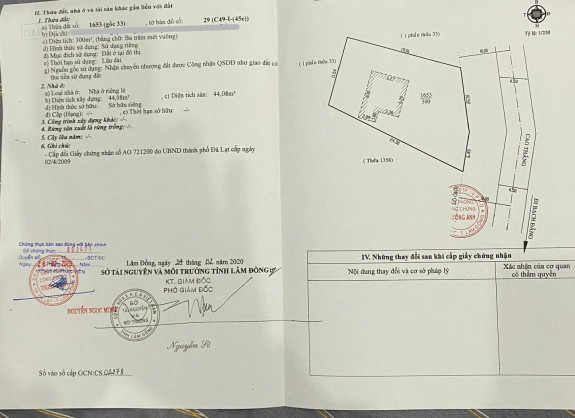 II. Thửa đất, nhà ở và tài sản khác gắn liền với đất
1. Thửa đất:
a) Thửa đất số: 1653 (gốc 33) , tờ bản đồ số: 29 (C49-I-(45c))
b) Địa chỉ:
c) Diện tích: 300m², (bằng chữ: Ba trăm mét vuông)
d) Hình thức sử dụng: Sử dụng riêng
đ) Mục đích sử dụng: Đất ở tại đô thị
e) Thời hạn sử dụng: Lâu dài
g) Nguồn gốc sử dụng: Nhận chuyển nhượng đất được Công nhận QSDĐ như giao đất có
thu tiền sử dụng đất
2. Nhà ở:
a) Loại nhà ở: Nhà ở riêng lẻ
b) Diện tích xây dựng: 44,08m² , c) Diện tích sàn: 44,08m²
d) Hình thức sở hữu: Sở hữu riêng
đ) Cấp (Hạng): -/- , e) Thời hạn sở hữu: -/-
3. Công trình xây dựng khác: -/-
4. Rừng sản xuất là rừng trồng: -/-
5. Cây lâu năm: -/-
6. Ghi chú:
- Cấp đổi Giấy chứng nhận số AO 721200 do UBND thành phố Đà Lạt cấp ngày
02/4/2009
Chứng thực bản sao đúng với bản chính
Số chứng thực
Quyển số SCT/BS
Ngày
NGUYỄN NGỌC MINH
Lâm Đồng, ngày 24 tháng 02 năm 2020
SỞ TÀI NGUYÊN VÀ MÔI TRƯỜNG TỈNH LÂM ĐỒNG
KT. GIÁM ĐỐC
PHÓ GIÁM ĐỐC
SỞ
TÀI NGUYÊN
VÀ
MÔI TRƯỜNG
TỈNH LÂM ĐỒNG
Số vào sổ cấp GCN: CS 02178
Tỷ lệ: 1/250
(1 phần thửa 33)
(1 phần thửa 33)
1653
300
(Thửa 1358)
24.20
CAO THẮNG
ĐI BẠCH ĐẰNG
VĂN PHÒNG
CÔNG CHỨNG
ĐÔNG ANH
IV. Những thay đổi sau khi cấp giấy chứng nhận
Nội dung thay đổi và cơ sở pháp lý
Xác nhận của cơ quan
có thẩm quyền